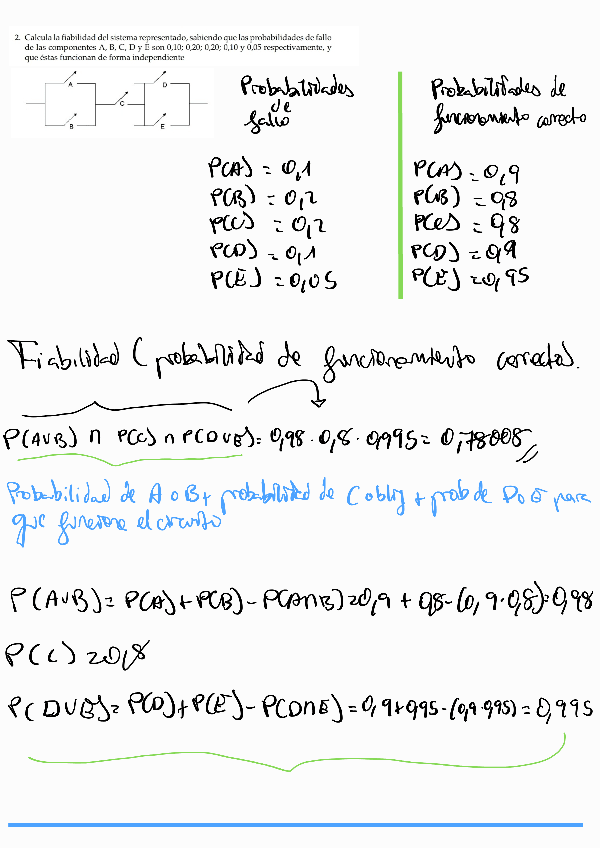 2. Calcula la fiabilidad del sistema representado, sabiendo que las probabilidades de fallo
de las componentes A, B, C, D y E son 0,10; 0,20; 0,20; 0,10 y 0,05 respectivamente, y
que éstas funcionan de forma independiente
A
D
C
B
E
Probabilidades
de
fallo
P(A) = 0,1
P(B) = 0,2
P(C) = 0,2
P(D) = 0,1
P(E) = 0,05
Probabilidades de
funcionamiento correcto
P(A) = 0,9
P(B) = 0,8
P(C) = 0,8
P(D) = 0,9
P(E) = 0,95
Fiabilidad (probabilidad de funcionamiento correcto).
P(A∪B) ∩ P(C) ∩ P(D∪E) = 0,98 · 0,8 · 0,995 = 0,78008
Probabilidad de A o B + probabilidad de C oblig + prob de D o E para
que funcione el circuito
P(A∪B) = P(A) + P(B) - P(A∩B) = 0,9 + 0,8 - (0,9 · 0,8) = 0,98
P(C) = 0,8
P(D∪E) = P(D) + P(E) - P(D∩E) = 0,9 + 0,95 - (0,9 · 0,95) = 0,995